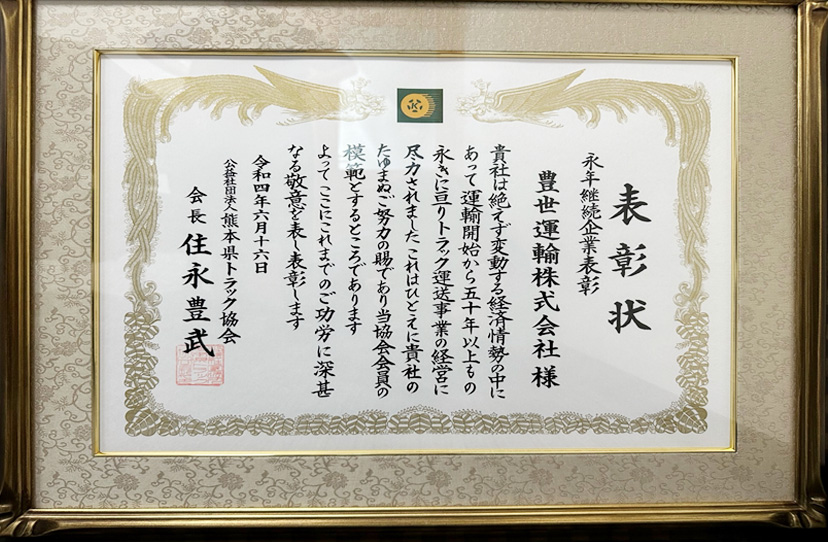 表彰状
永年継続企業表彰
豊世運輸株式会社 様
貴社は絶えず変動する経済情勢の中に
あって運輸開始から五十年以上もの
永きに亘りトラック運送事業の経営に
尽力されました これはひとえに貴社の
たゆまぬご努力の賜であり当協会会員の
模範とするところであります
よってここにこれまでのご功労に深甚
なる敬意を表し表彰します
令和四年六月十六日
公益社団法人 熊本県トラック協会
会長 住永豊武